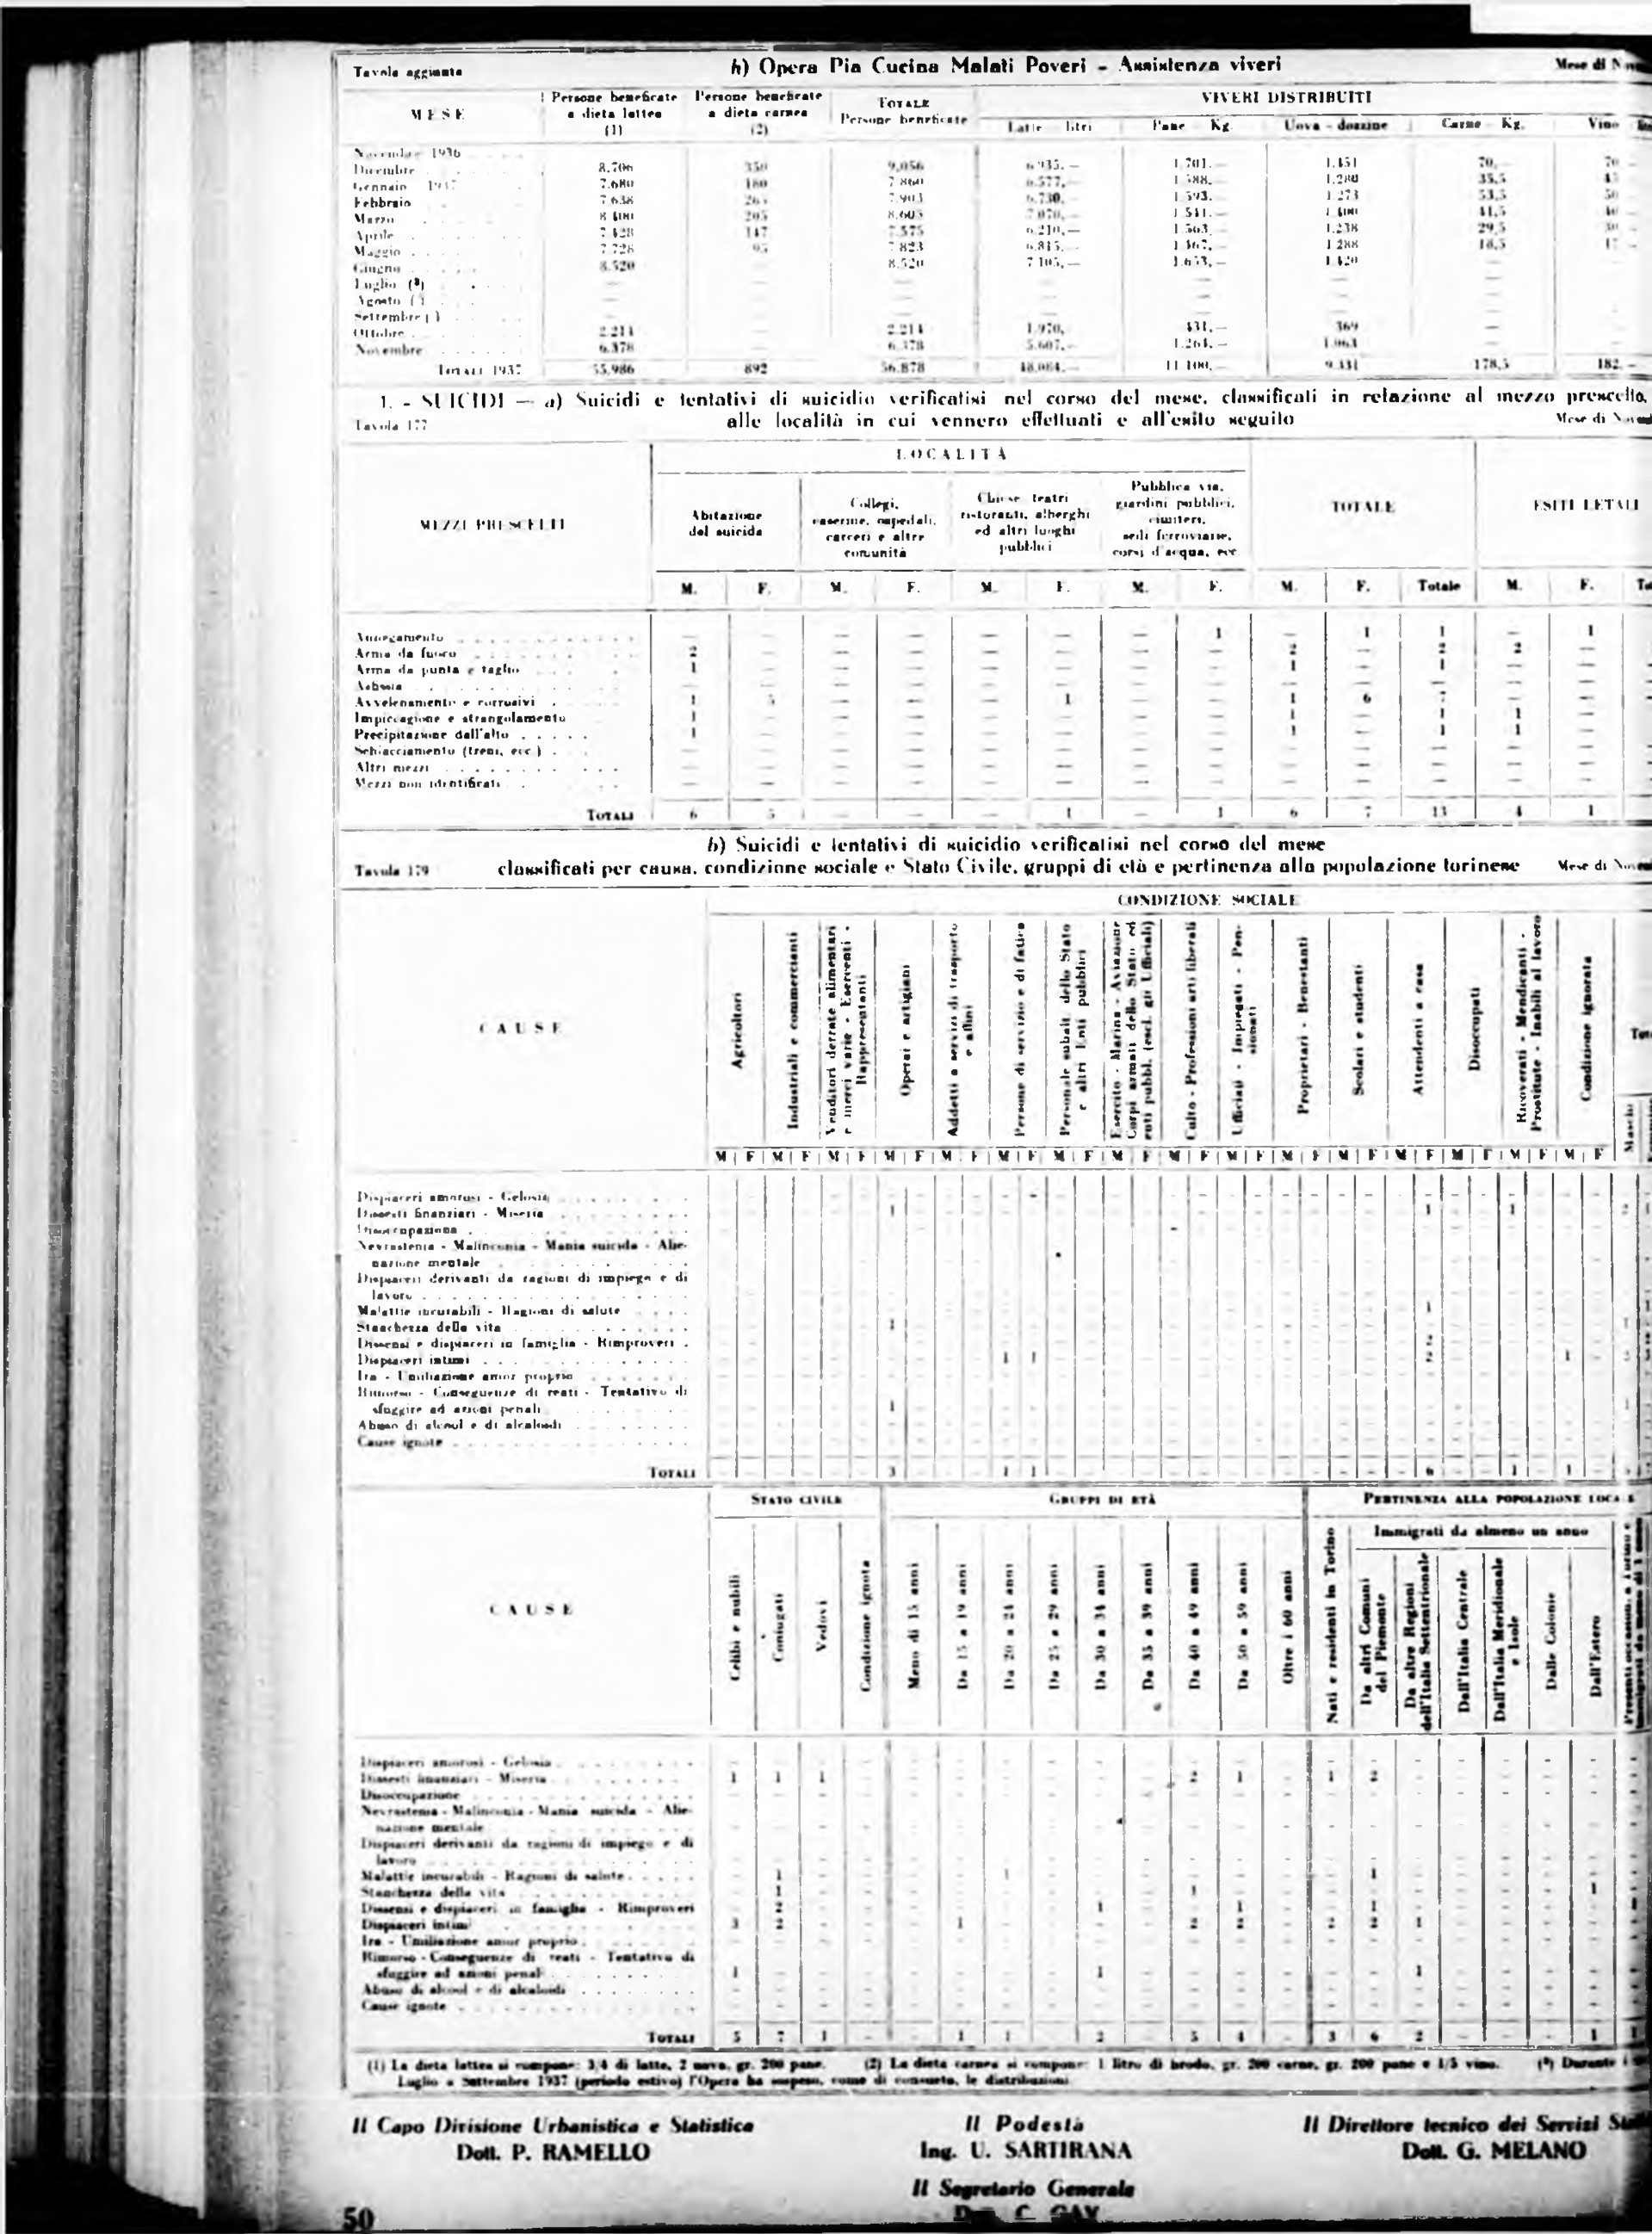 Tavola aggiunta
h) Opera Pia Cucina Malati Poveri - Assistenza viveri
Mese di
MESE
Persone beneficate a dieta lattea (1)
Persone beneficate a dieta carnea (2)
TOTALE Persone beneficate
VIVERI DISTRIBUITI
Latte - litri
Pane - Kg.
Uova - dozzine
Carne - Kg.
Vino
Novembre 1936
Dicembre
Gennaio 1937
Febbraio
Marzo
Aprile
Maggio
Giugno
Luglio (³)
Agosto
Settembre
Ottobre
Novembre
TOTALI 1937
8.706 350 9.056 6.935,— 1.701,— 1.451 70,
7.680 180 7.860 6.577,— 1.588,— 1.280 35,5
7.638 7.903 6.730,— 1.593,— 1.273 53,5
8.400 205 8.605 7.070,— 1.541,— 1.400 41,5
7.428 147 7.575 6.210,— 1.563,— 1.238 29,5
7.728 95 7.823 6.815,— 1.467,— 1.288 18,5
8.520 — 8.520 7.105,— 1.653,— 1.420 —
2.214 — 2.214 1.970, 431,— 369 —
6.378 — 6.378 5.607,— 1.264,— 1.063 —
55.986 892 56.878 48.084,— 11.100,— 9.331 178,5 182,—
1. - SUICIDI — a) Suicidi e tentativi di suicidio verificatisi nel corso del mese, classificati in relazione al mezzo prescelto,
Tavola 177
alle località in cui vennero effettuati e all'esito seguito
Mese di
MEZZI PRESCELTI
LOCALITÀ
Abitazione del suicida
Collegi, caserme, ospedali, carceri e altre comunità
Chiese teatri ristoranti, alberghi ed altri luoghi pubblici
Pubblica via, giardini pubblici, cimiteri, sedi ferroviarie, corsi d'acqua, ecc.
TOTALE
ESITI LETALI
M. F. M. F. M. F. M. F. M. F. Totale M. F.
Annegamento — — — — — — — 1 — 1 1 — 1
Arma da fuoco 2 — — — — — — — 2 — 2 2 —
Arma da punta e taglio 1 — — — — — — — 1 — 1 — —
Asfissia — — — — — — — — — — — — —
Avvelenamento e corrosivi 1 5 — — — 1 — — 1 6 7 — —
Impiccagione e strangolamento 1 — — — — — — — 1 — 1 1 —
Precipitazione dall'alto 1 — — — — — — — 1 — 1 1 —
Schiacciamento (treni, ecc.) — — — — — — — — — — — — —
Altri mezzi — — — — — — — — — — — — —
Mezzi non identificati — — — — — — — — — — — — —
TOTALI 6 5 — — — 1 — 1 6 7 13 4 1
b) Suicidi e tentativi di suicidio verificatisi nel corso del mese
Tavola 179
classificati per causa, condizione sociale e Stato Civile, gruppi di età e pertinenza alla popolazione torinese
Mese di
CAUSE
CONDIZIONE SOCIALE
Agricoltori
Industriali e commercianti
Venditori derrate alimentari e merci varie - Esercenti - Rappresentanti
Operai e artigiani
Addetti a servizi di trasporto e affini
Persone di servizio e di fatica
Personale subalt. dello Stato e altri Enti pubblici
Esercito - Marina - Aviazione Corpi armati dello Stato ed enti pubbl. (escl. gli Ufficiali)
Culto - Professioni arti liberali
Ufficiali - Impiegati - Pensionati
Proprietari - Benestanti
Scolari e studenti
Attendenti a casa
Disoccupati
Ricoverati - Mendicanti - Prostitute - Inabili al lavoro
Condizione ignorata
Maschi
M F M F M F M F M F M F M F M F M F M F M F M F M F M F M F M F
Dispiaceri amorosi - Gelosia
Dissesti finanziari - Miseria 1 1 1
Disoccupazione
Nevrastenia - Malinconia - Mania suicida - Alie-
nazione mentale
Dispiaceri derivanti da ragioni di impiego e di
lavoro
Malattie incurabili - Ragioni di salute 1
Stanchezza della vita 1
Dissensi e dispiaceri in famiglia - Rimproveri 2
Dispiaceri intimi 1 1 2 1
Ira - Umiliazione amor proprio
Rimorso - Conseguenze di reati - Tentativo di
sfuggire ad azioni penali 1
Abuso di alcool e di alcaloidi
Cause ignote
TOTALI 3 1 1 6 1 1
CAUSE
STATO CIVILE
GRUPPI DI ETÀ
PERTINENZA ALLA POPOLAZIONE LOCALE
Immigrati da almeno un anno
Celibi e nubili
Coniugati
Vedovi
Condizione ignota
Meno di 15 anni
Da 15 a 19 anni
Da 20 a 24 anni
Da 25 a 29 anni
Da 30 a 34 anni
Da 35 a 39 anni
Da 40 a 49 anni
Da 50 a 59 anni
Oltre i 60 anni
Nati e residenti in Torino
Da altri Comuni del Piemonte
Da altre Regioni dell'Italia Settentrionale
Dall'Italia Centrale
Dall'Italia Meridionale e Isole
Dalle Colonie
Dall'Estero
Dispiaceri amorosi - Gelosia
Dissesti finanziari - Miseria 1 1 1 2 1 1 2
Disoccupazione
Nevrastenia - Malinconia - Mania suicida - Alie-
nazione mentale
Dispiaceri derivanti da ragioni di impiego e di
lavoro
Malattie incurabili - Ragioni di salute 1 1 1
Stanchezza della vita 1 1 1
Dissensi e dispiaceri in famiglia - Rimproveri 2 1 1 1
Dispiaceri intimi 3 2 1 2 2 2 2 1
Ira - Umiliazione amor proprio
Rimorso - Conseguenze di reati - Tentativo di
sfuggire ad azioni penali 1 1 1
Abuso di alcool e di alcaloidi
Cause ignote
TOTALI 5 7 1 - - 1 1 - 2 - 5 4 - 3 6 2 - - - 1
(1) La dieta lattea si compone: 3/4 di latte, 2 uova, gr. 200 pane. (2) La dieta carnea si compone: 1 litro di brodo, gr. 200 carne, gr. 200 pane e 1/5 vino. (³) Durante i
Luglio a Settembre 1937 (periodo estivo) l'Opera ha sospeso, come di consueto, le distribuzioni.
Il Capo Divisione Urbanistica e Statistica
Dott. P. RAMELLO
Il Podestà
Ing. U. SARTIRANA
Il Direttore tecnico dei Servizi
Dott. G. MELANO
Il Segretario Generale
C. GAY
50